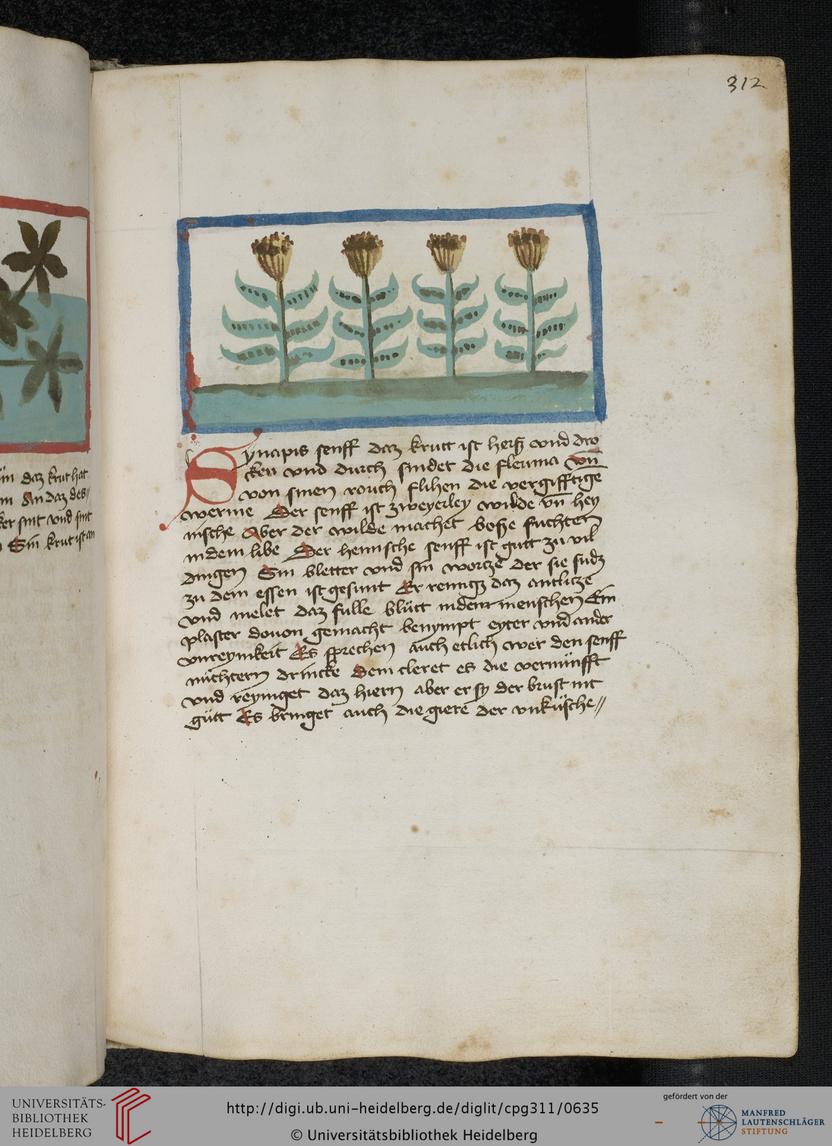 312
ün daz krut hat
m An daz des//
ker sint vnd sint
Sin krut ist an
Synapis senff daz krutt ist heiß vnd dro
cken vnd durch findet die fleuma vn̄
von sinen rouch flihen die vergifftige
werme Der senff ist zweyerley wilde vn̄ hey
nische Aber der wilde machet boße fuchten
in dem libe Der heimsche senff ist gutt zu vil
dingen Sin bletter vnd sin wortze der sie sudz
zu dem essen ist gesunt Er reinigz daz antlitze
vnd melet daz fulle blütt in dem menschen Ein
plaster douon gemacht benympt eyter vnd ander
vnreynikeit Es sprechen auch etlich wer den senff
nüchtern drincke Dem cleret es die vernünfft
vnd reyniget daz hiern aber er sy der brust nit
gütt Es bringet auch die giere der vnküsche//
UNIVERSITÄTS-
BIBLIOTHEK
HEIDELBERG
http://digi.ub.uni-heidelberg.de/diglit/cpg311/0635
© Universitätsbibliothek Heidelberg
gefördert von der
MANFRED
LAUTENSCHLÄGER
STIFTUNG